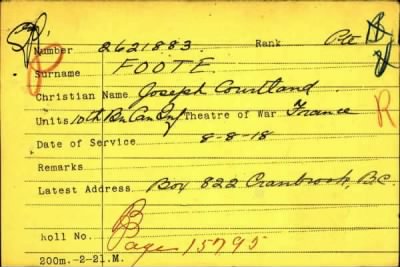 Number 2621883 Rank Pte
Surname FOOTE
Christian Name Joseph Courtland
Units 10th Bn Can Inf Theatre of War France
Date of Service 8-8-18
Remarks
Latest Address Box 822 Cranbrook, B.C.
R
holl No.
B
Page 15795
200m.-2-21.M.